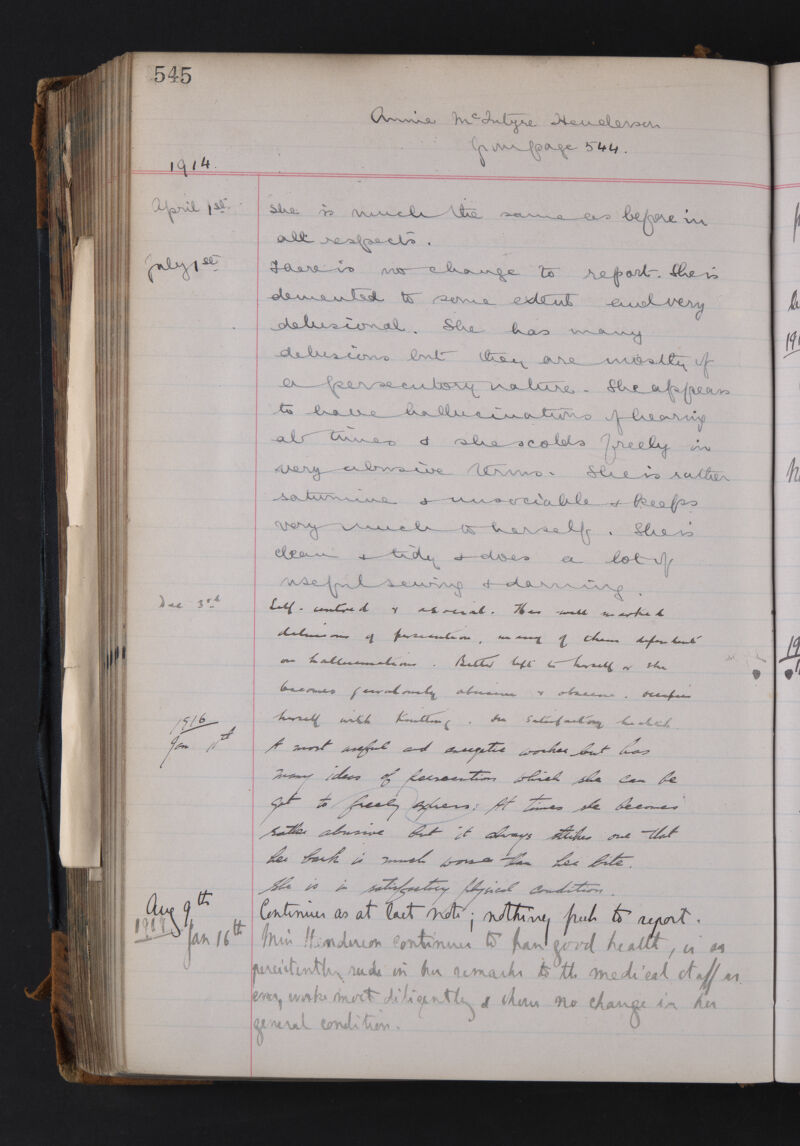 545
Annie McIntyre Henderson
from page 544.
1914.
April 1st. She is much the same as before in
all respects.
July 1st There is no change to report. She is
demented to some extent and very
delusional. She has many
delusions but they are mostly of
a persecutory nature. She appears
to have hallucinations of hearing
at times & she scolds freely in
very abusive terms. She is rather
saturnine & unsociable & keeps
very much to herself. She is
clean & tidy & does a lot of
useful sewing & darning.
Dec 3rd Self-centred & asocial. Has well marked
delusions of persecution, many of them dependent
on hallucinations. Better left to herself or she
becomes abusive & obscene. Occupies
herself with knitting. In satisfactory health.
1916
Jan A most useful and energetic worker but has
many ideas of persecution which she can be
got to freely express: At times she becomes
rather abusive but it always strikes one that
her bark is much worse than her bite.
She is in satisfactory physical condition.
Aug 9th Continues as at last note; nothing fresh to report.
Jan 16th Miss Henderson continues to have good health, is as
persistently rude in her remarks to the medical staff as
ever, works most diligently & shows no change in her
general condition.